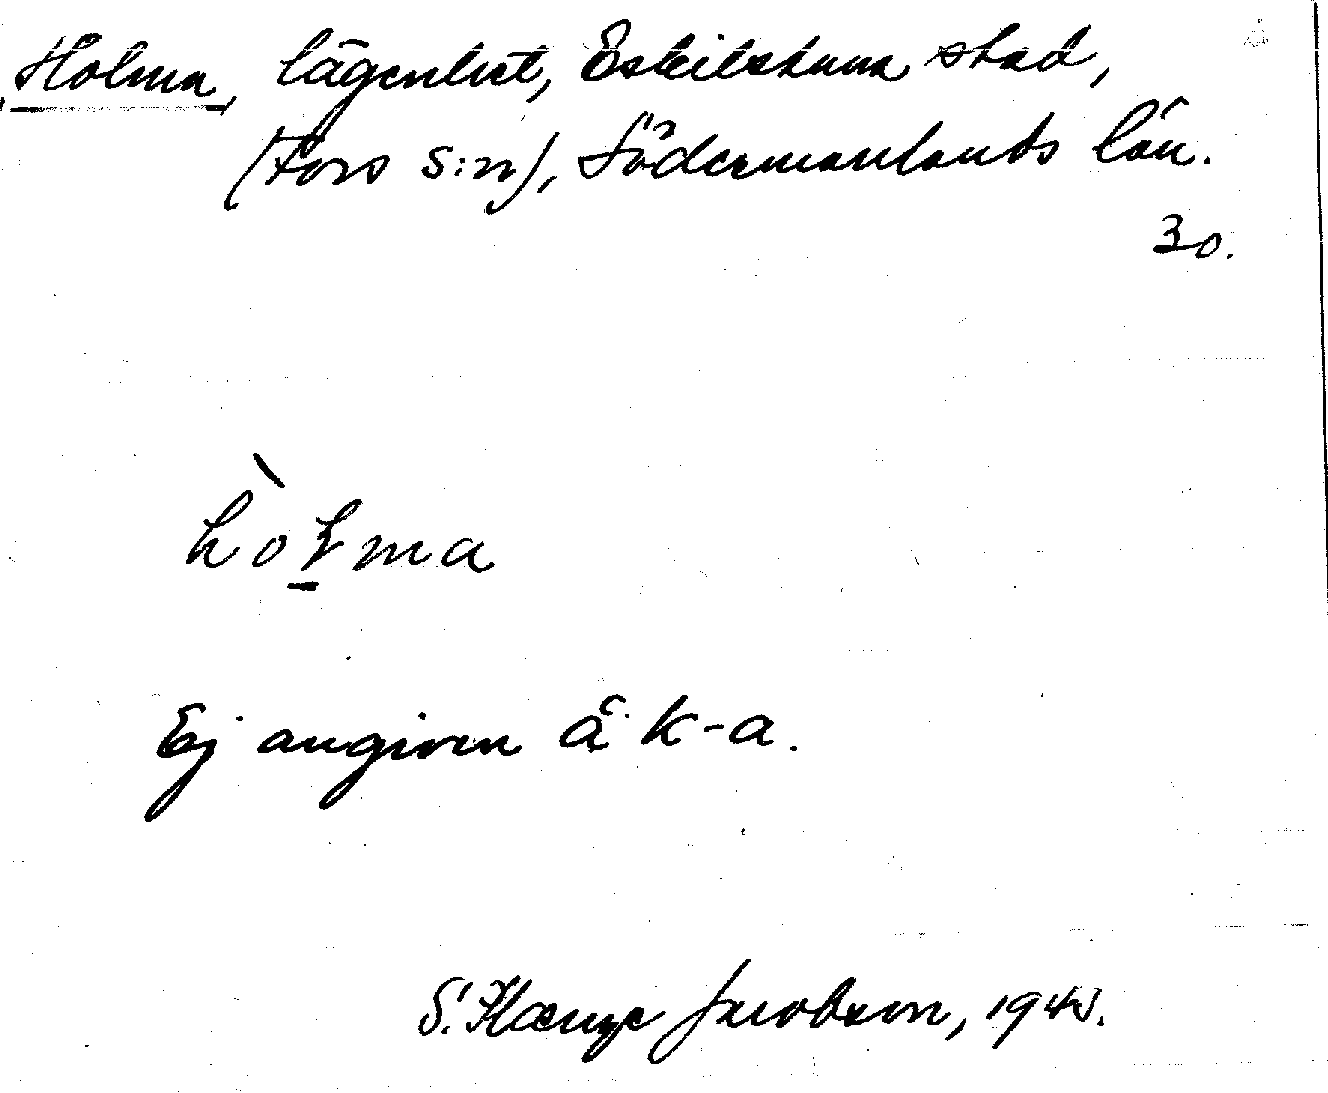 Holma, lägenhet, Eskilstuna stad,
(Fors s:n), Södermanlands län.
30.
hòłma
Ej angiven å k-a.
S. Jacobson, 194